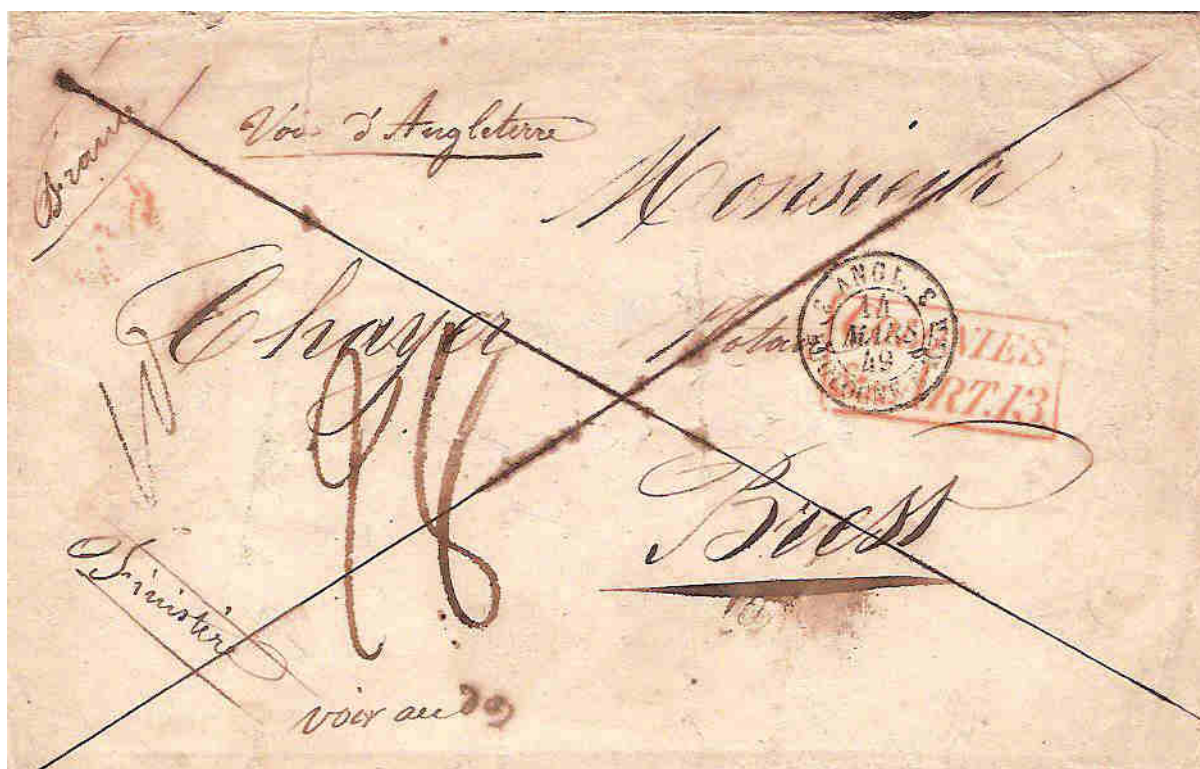 France
Voie d'Angleterre
Monsieur
Notaire
ANGL.
14
MARS
49
BOULOGNE
ART.13
Brest
Finistère
voir au dos